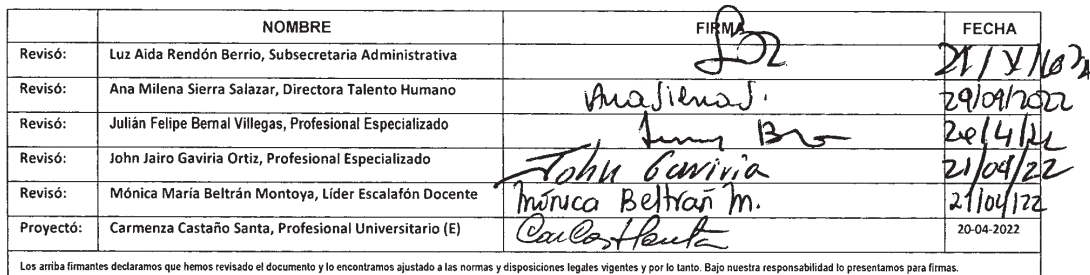 NOMBRE FIRMA FECHA
Revisó: Luz Aida Rendón Berrio, Subsecretaria Administrativa
Revisó: Ana Milena Sierra Salazar, Directora Talento Humano AnaSierraS. 29/09/2022
Revisó: Julián Felipe Bernal Villegas, Profesional Especializado
Revisó: John Jairo Gaviria Ortiz, Profesional Especializado John Gaviria 21/04/22
Revisó: Mónica María Beltrán Montoya, Líder Escalafón Docente Mónica Beltrán M. 21/04/22
Proyectó: Carmenza Castaño Santa, Profesional Universitario (E) 20-04-2022
Los arriba firmantes declaramos que hemos revisado el documento y lo encontramos ajustado a las normas y disposiciones legales vigentes y por lo tanto. Bajo nuestra responsabilidad lo presentamos para firmas.